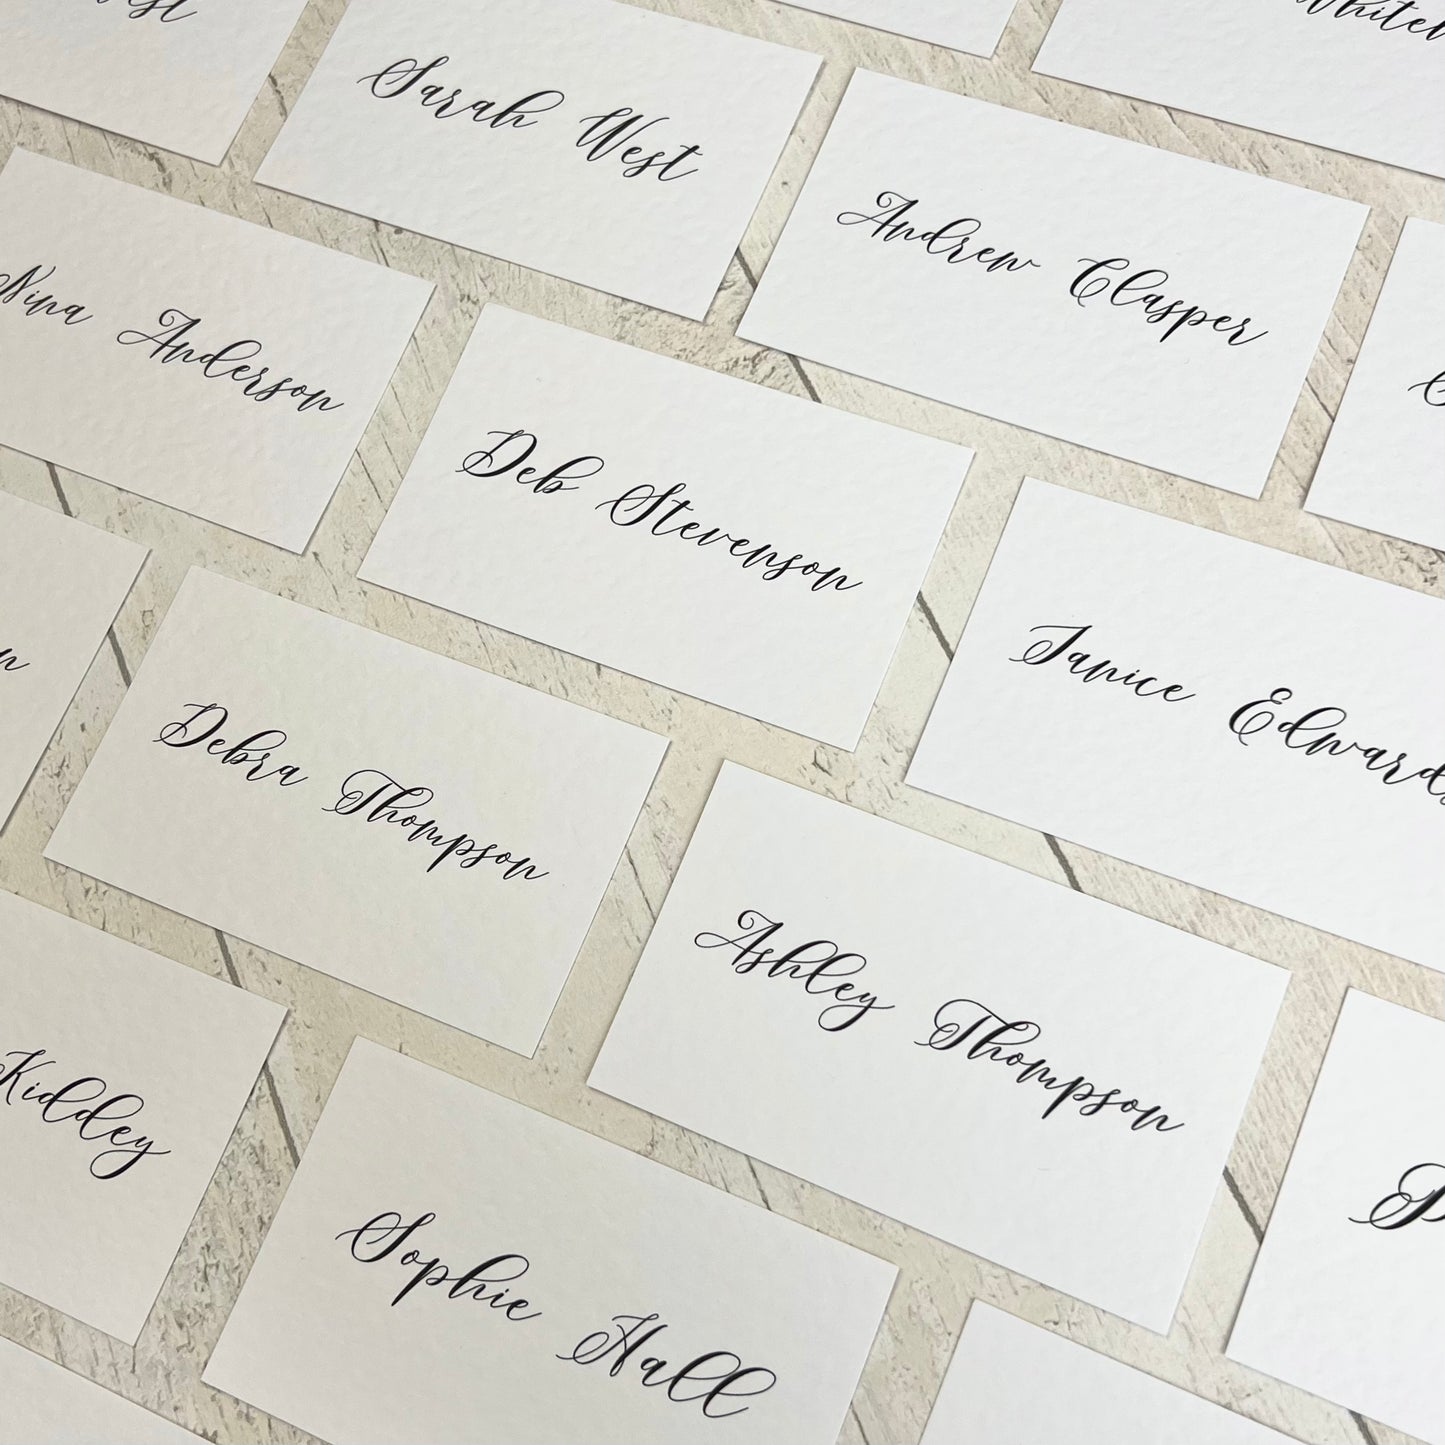 Sarah West
Andrew Clasper
Nina Anderson
Deb Stevenson
Janice Edwards
Debra Thompson
Ashley Thompson
Kiddey
Sophie Hall